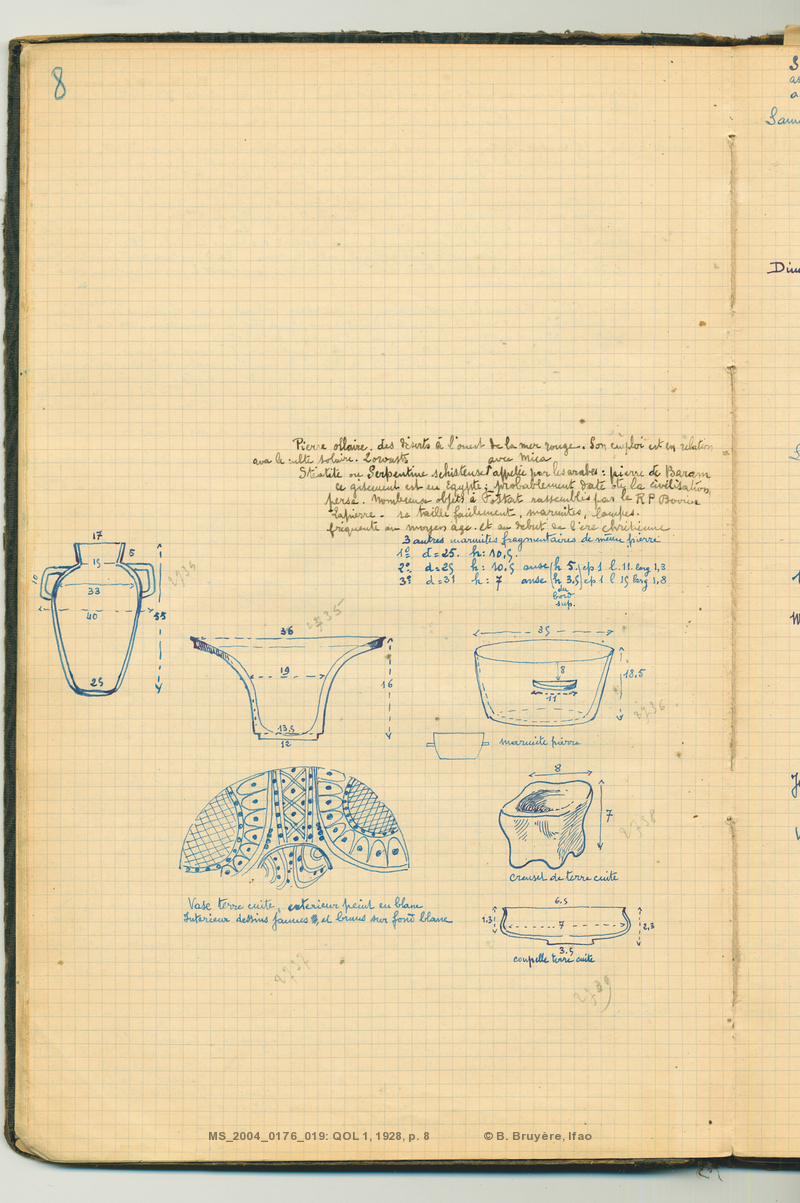 8
Pierre ollaire. des déserts à l'ouest de la mer rouge. Son emploi est en relation
avec le culte solaire. avec Mica
Stéatite ou Serpentine schisteuse appelée par les arabes : pierre de Baram
ce gisement est en Egypte ; probablement date de la civilisation
perse. Nombreux objets à Fostat rassemblés par le R P Bovier
Lapierre. se taille facilement, marmites, lampes.
fréquente au moyen age. et au début de l'ère chrétienne
3 autres marmites fragmentaires de même pierre
1º d=25. h: 10,5.
2º d=25 h: 10.5 anse (h 5.) ep 1 l. 11. larg 1,3
3º d=31 h: 7 anse (h 3,5) ep 1 l 15 larg 1,8
du
bord
sup.
17
5
15
10
33
40
55
25
2735
36
19
16
13,5
12
2735
35
8
11
18.5
2736
marmite pierre
8
7
2738
creuset de terre cuite
Vase terre cuite, exterieur peint en blanc
Interieur dessins jaunes et bruns sur fond blanc
2737
6.5
1,3
7
2,3
3.5
coupelle terre cuite
2739
S
as
a
Dim
MS_2004_0176_019: QOL 1, 1928, p. 8 © B. Bruyère, Ifao